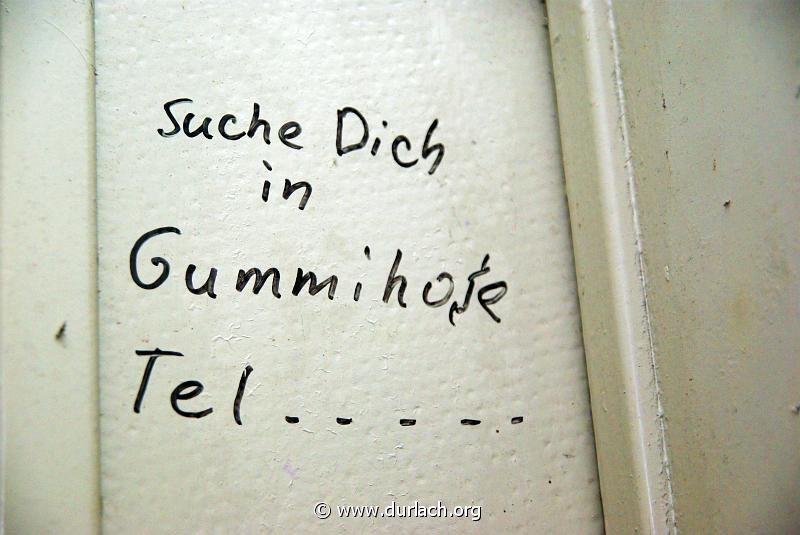 Suche Dich
in
Gummihose
Tel - - - - -
© www.durlach.org